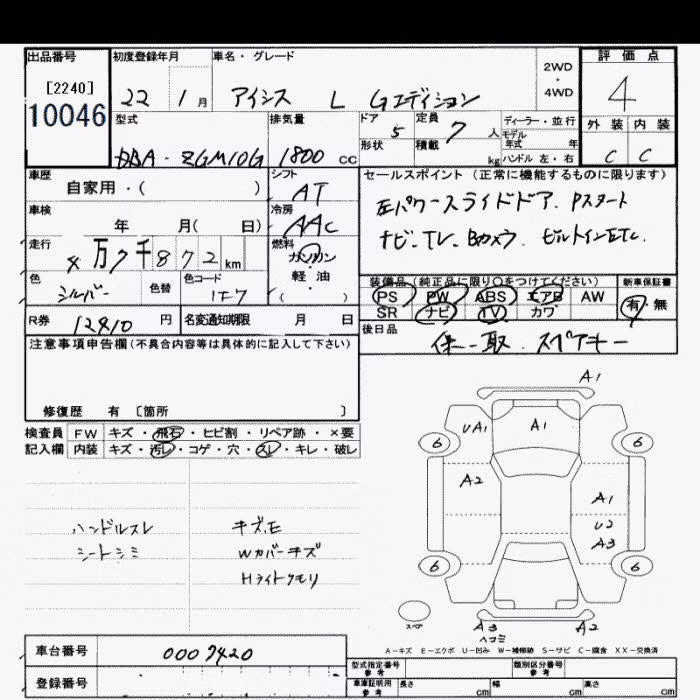 出品番号 初度登録年月 車名・グレード 2WD ・ 4WD 評価点
[2240] 22 1月 アイシス L Gエディション 4
10046 型式 排気量 ドア 5 定員 7人 ディーラー・並行 外装 内装
形状 積載 kg モデル年式 年
DBA-ZGM10G 1800cc ハンドル左・右 C C
車歴 シフト セールスポイント (正常に機能するものに限ります)
自家用・( ) AT 左パワースライドドア. Pスタート
車検 冷房 ナビ. TV. Bカメラ. ビルトインETC.
年 月( 日) AAC
走行 燃料
4万7千872km ガソリン
軽・油
( )
色 色替 色コード 装備品(純正品に限り○をつけてください) 新車保証書
シルバー 1F7 PS PW ABS エアB AW 有・無
SR ナビ TV カワ
R券 12410円 名変通知期限 月 日 後日品
保-取. スペアキー
注意事項申告欄(不具合内容等は具体的に記入して下さい)
修復歴 有 〔箇所 〕
検査員 FW キズ・飛石・ヒビ割・リペア跡・×要
記入欄 内装 キズ・汚レ・コゲ・穴・スレ・キレ・破レ
ハンドルスレ キズ,E
シートシミ Wカバーキズ
Hライトクモリ
A1
UA1 A1
6 6
A2 A1
U2
A3
6 6
スペア A3 A2
ヘコミ
A-キズ E-エクボ U-凹み W-補修跡 S-サビ C-腐食 XX-交換済
車台番号 0007420
型式指定番号 参考 類別区分番号 参考
登録番号 車庫証明用 参考 長さ cm 幅 cm 高さ cm